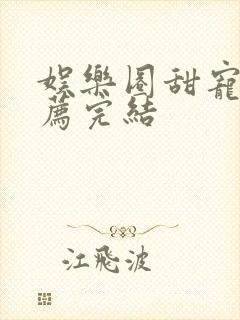 娛樂圈甜寵
薦完結
江飛波